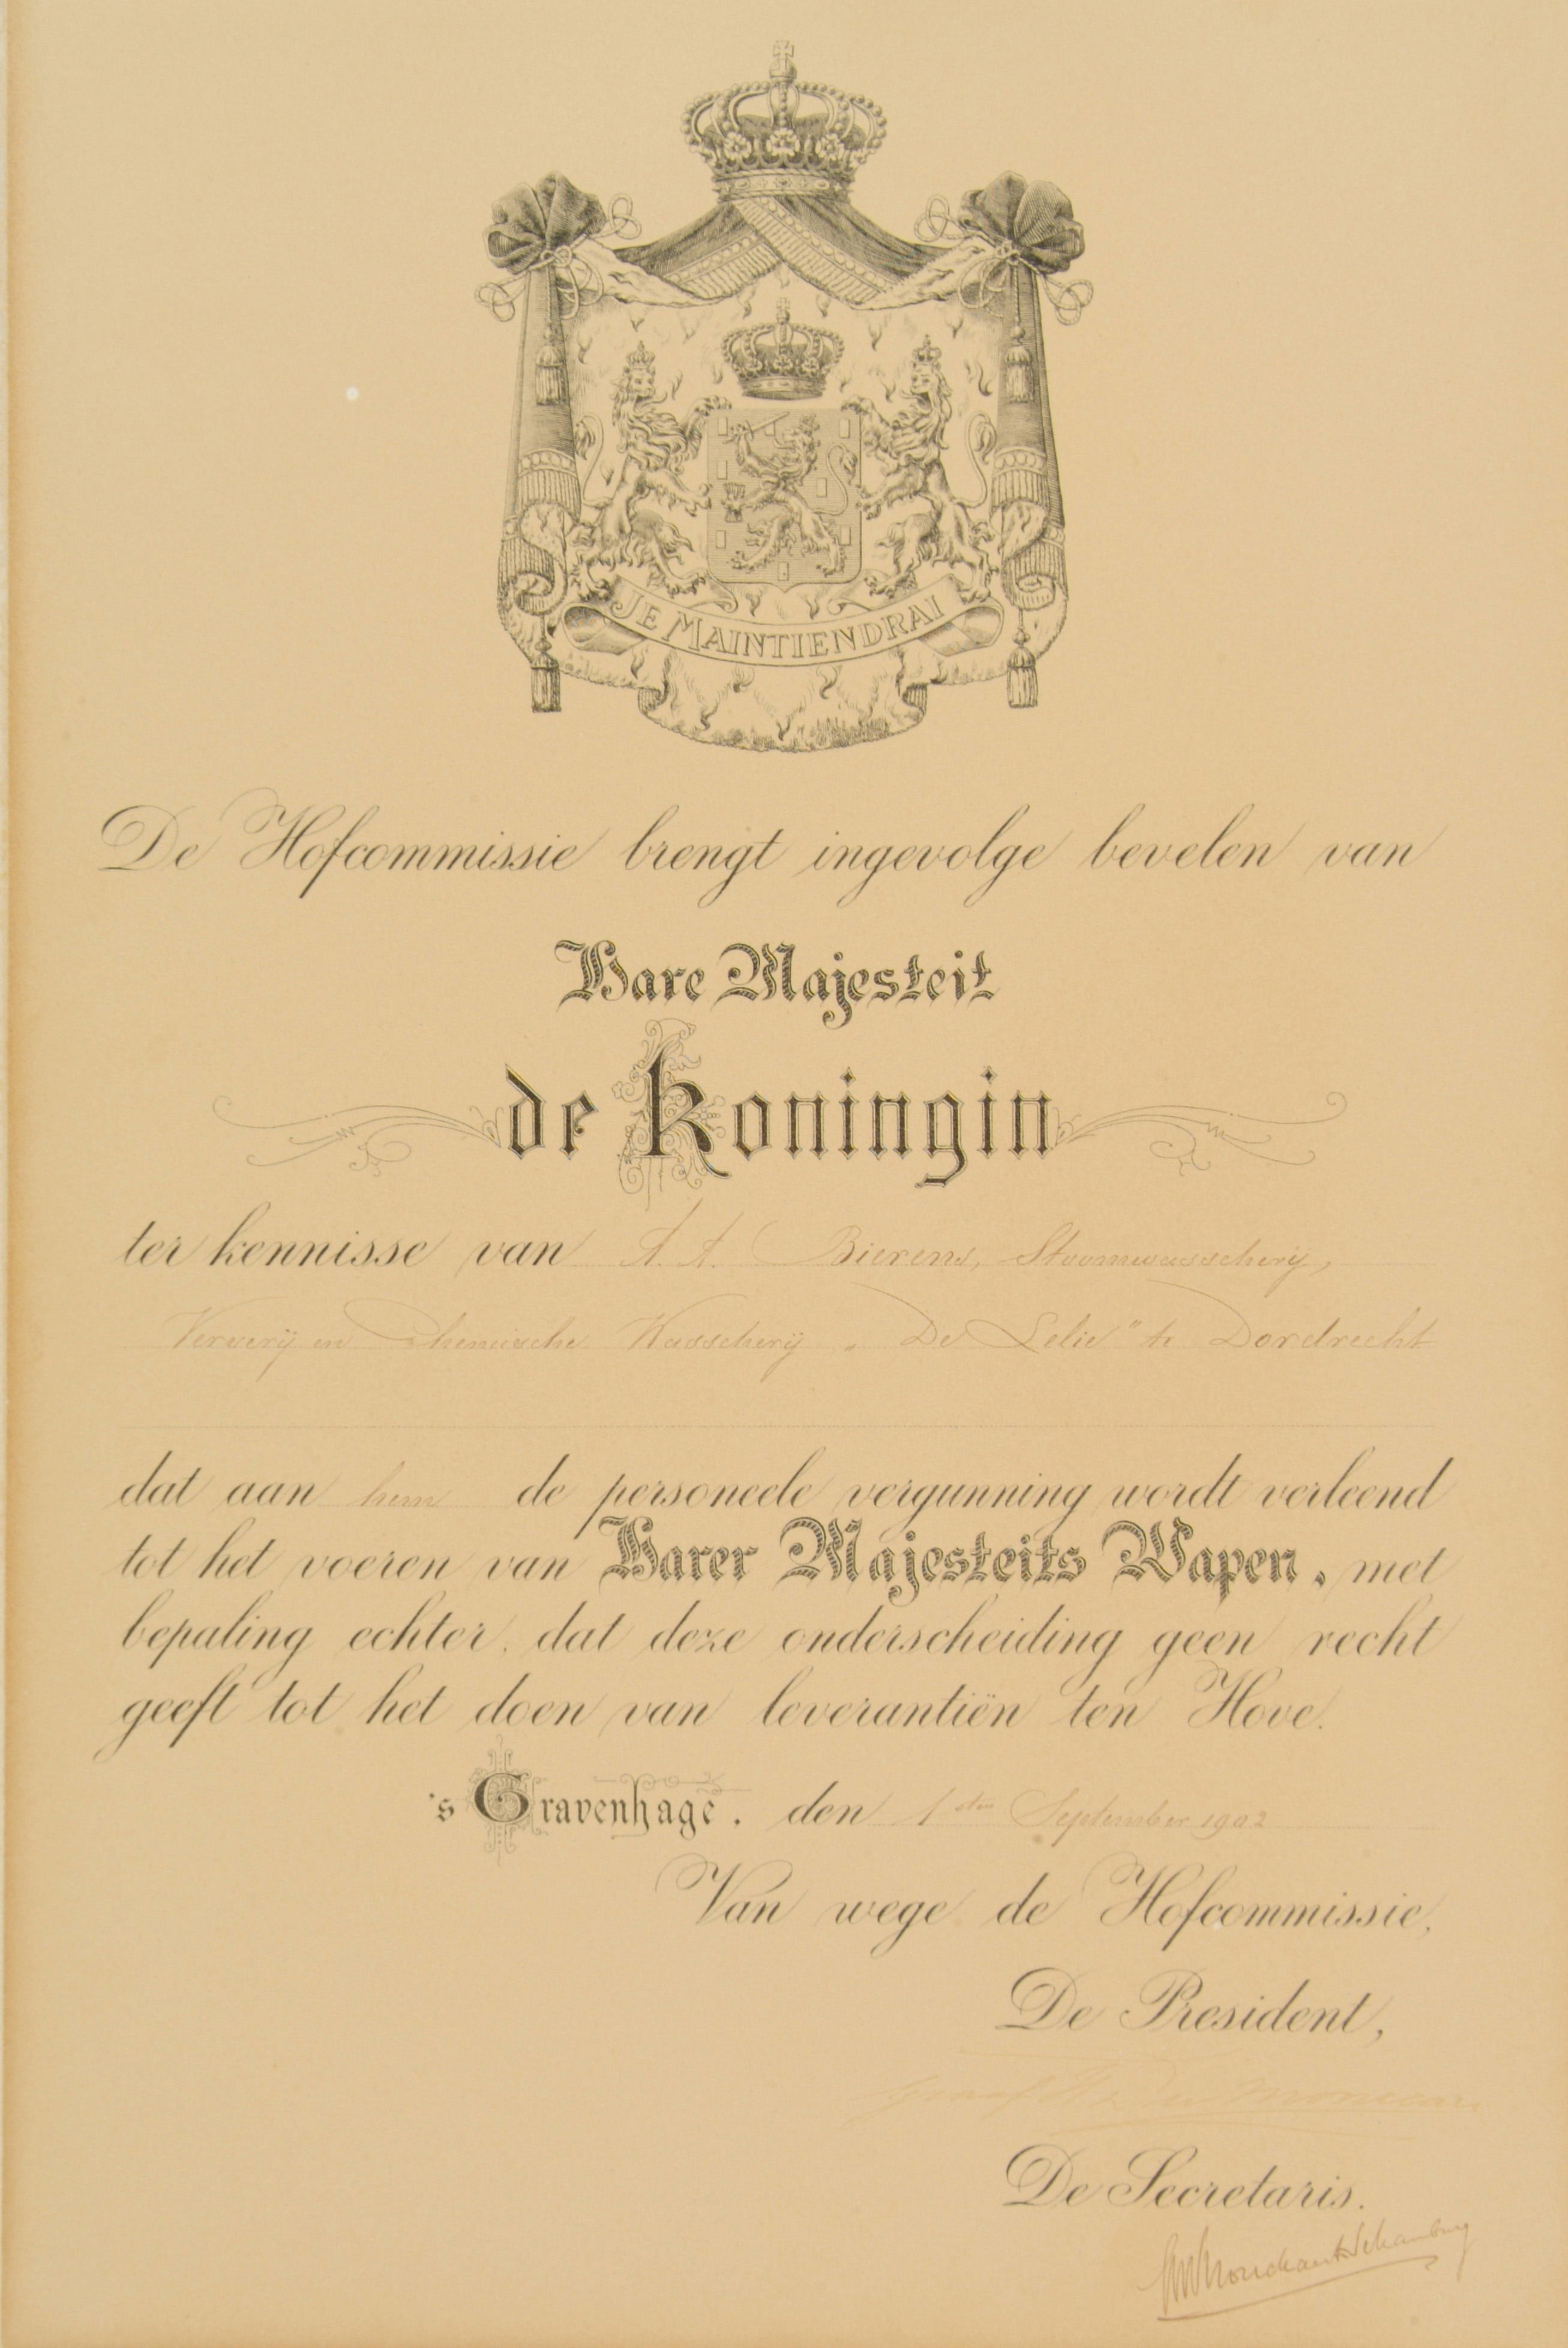 JE MAINTIENDRAI
De Hofcommissie brengt ingevolge bevelen van
Hare Majesteit
de Koningin
ter kennisse van A. A. Bierens, Stoomwasscherij,
Ververij en Chemische Wasscherij „De Lelie" te Dordrecht
dat aan hem de personeele vergunning wordt verleend
tot het voeren van Harer Majesteits Wapen, met
bepaling echter, dat deze onderscheiding geen recht
geeft tot het doen van leverantiën ten Hove.
's Gravenhage, den 1sten September 1902
Van wege de Hofcommissie,
De President,
De Secretaris.